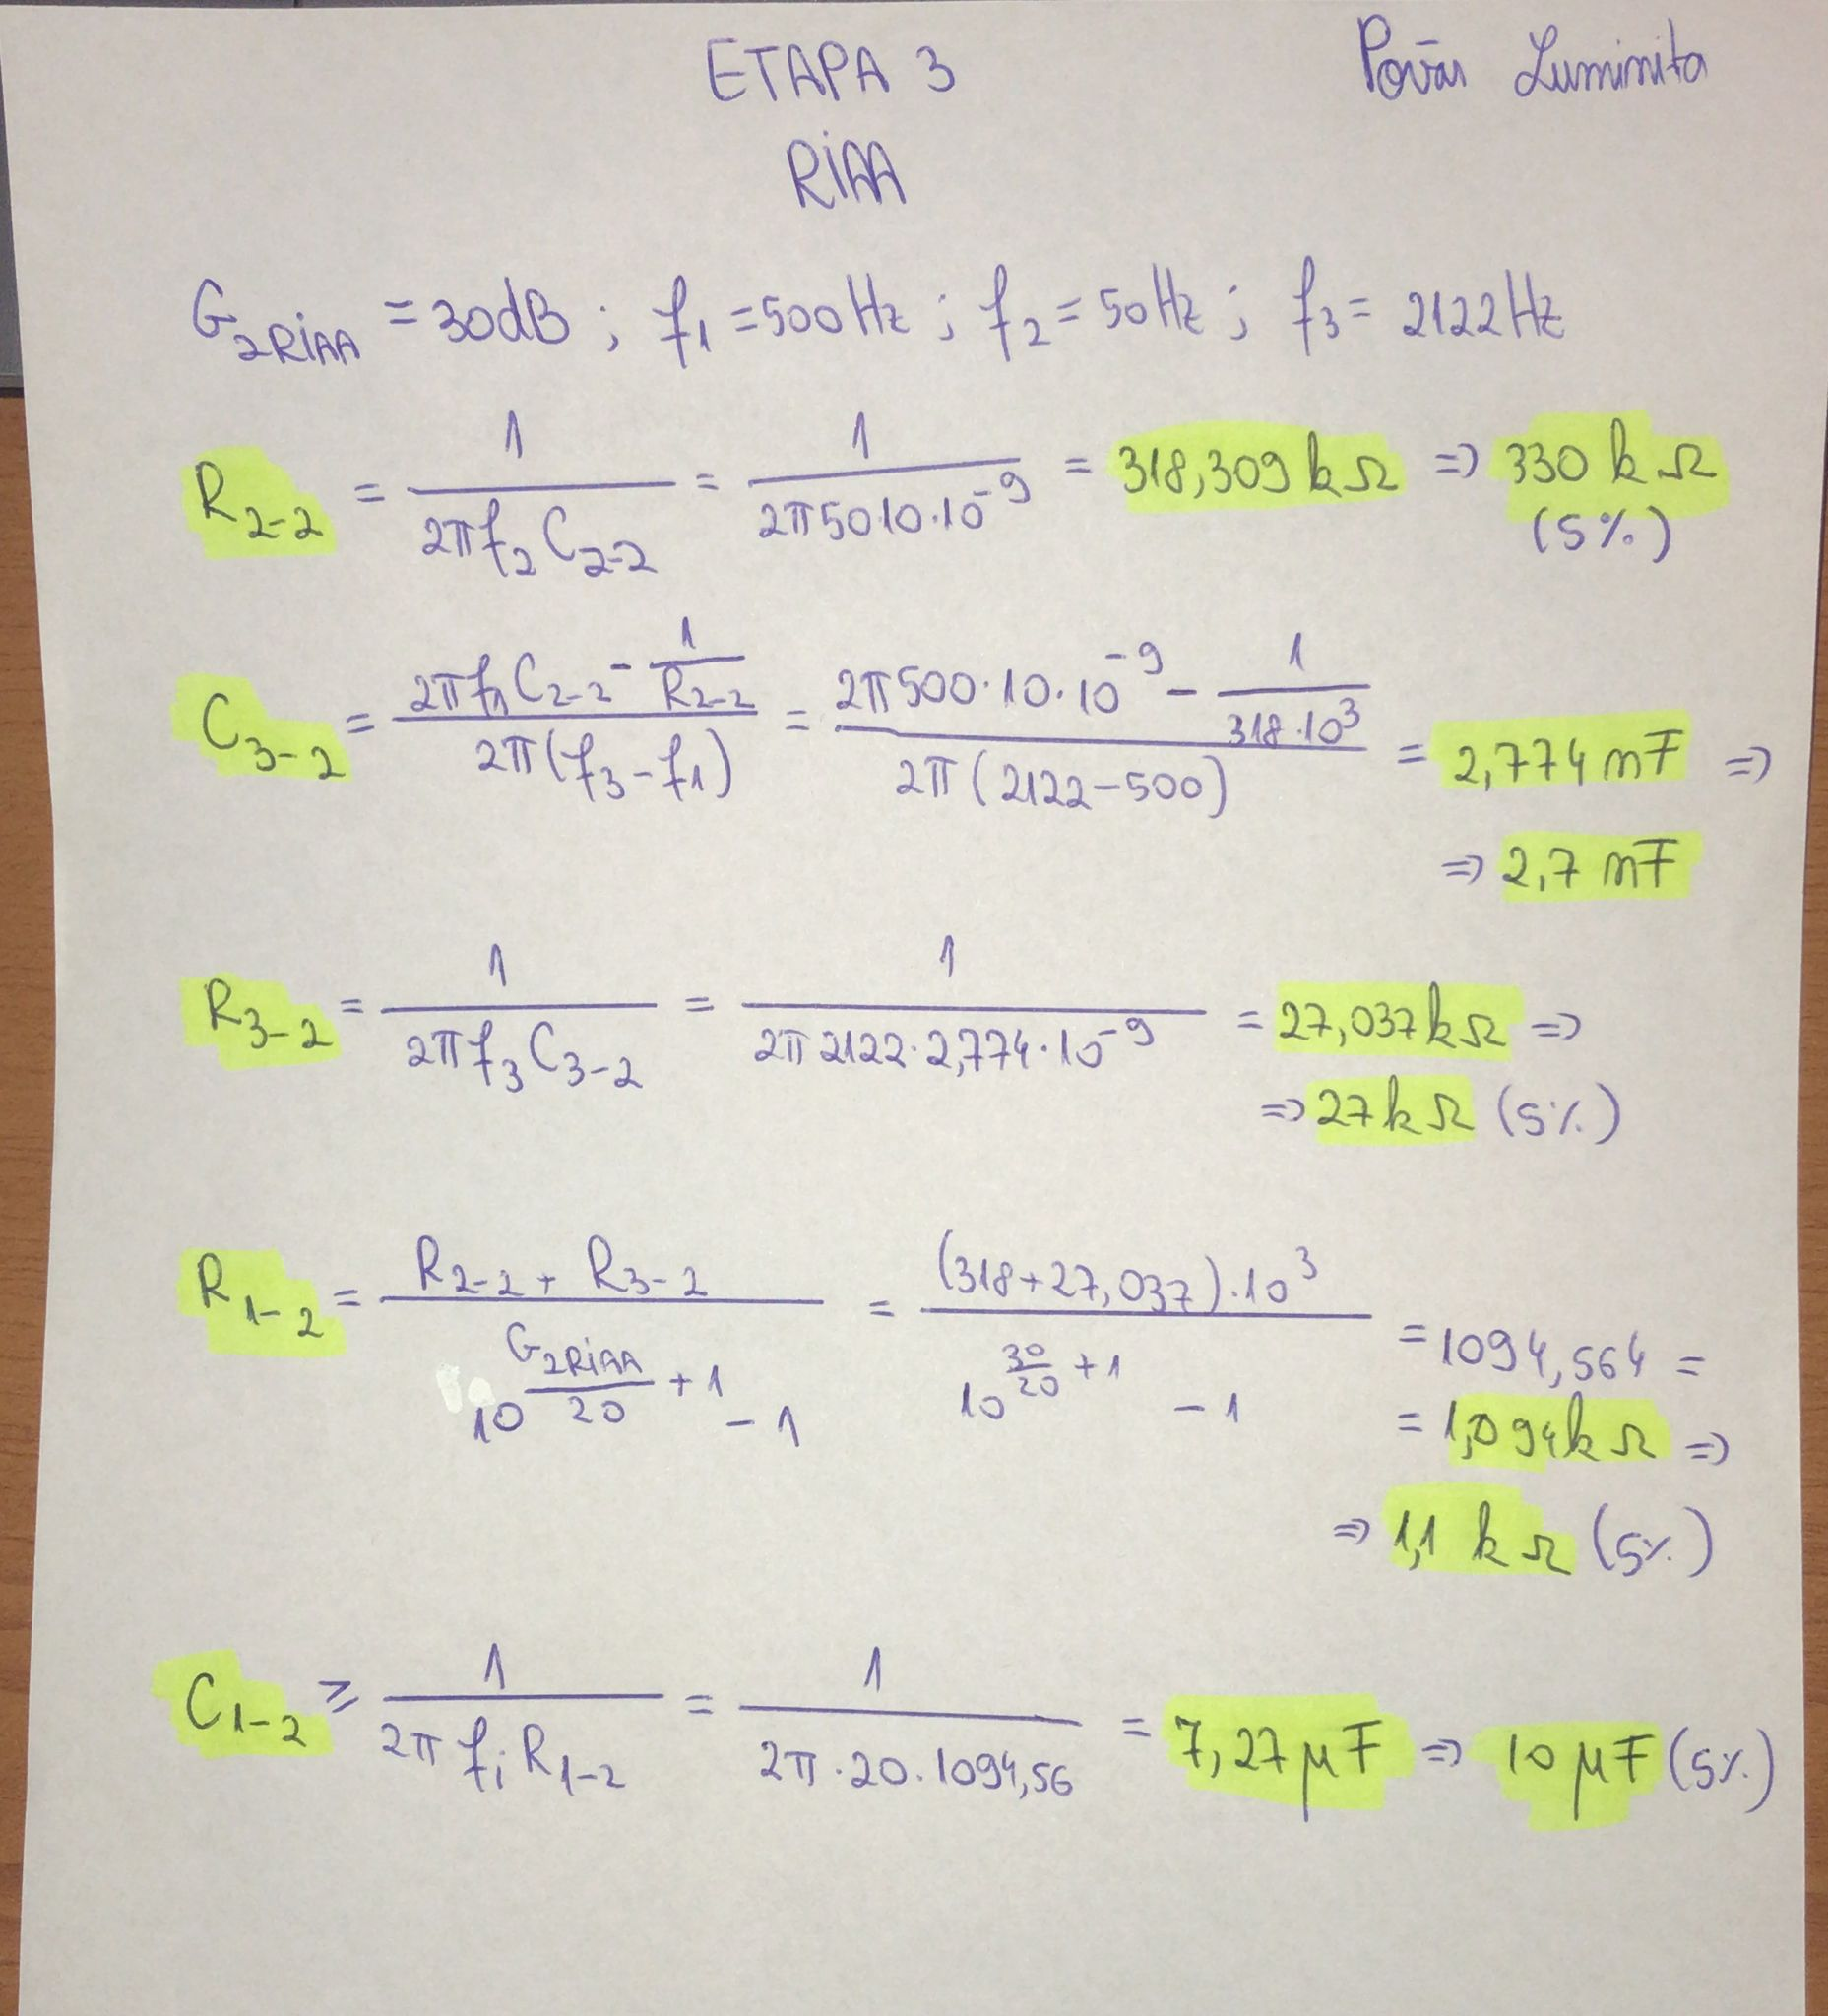 ETAPA 3 Povār Luminita
RIAA
G₂RIAA = 30dB ; f₁ = 500Hz ; f₂ = 50Hz ; f₃ = 2122Hz
R₂₋₂ = 1/(2πf₂C₂₋₂) = 1/(2π5010·10⁻⁹) = 318,309kΩ => 330kΩ
(5%)
C₃₋₂ = (2πf₁C₂₋₂ - 1/R₂₋₂)/(2π(f₃-f₁)) = (2π500·10·10⁻⁹ - 1/(318·10³))/(2π(2122-500)) = 2,774nF =>
=> 2,7nF
R₃₋₂ = 1/(2πf₃C₃₋₂) = 1/(2π2122·2,774·10⁻⁹) = 27,037kΩ =>
=> 27kΩ (5%)
R₁₋₂ = (R₂₋₂ + R₃₋₂)/(10^(G₂RIAA/20 + 1) - 1) = ((318+27,037)·10³)/(10^(30/20 + 1) - 1) = 1094,564 =
= 1,094kΩ =>
=> 1,1kΩ (5%)
C₁₋₂ ≥ 1/(2πfᵢR₁₋₂) = 1/(2π·20·1094,56) = 7,27μF => 10μF (5%)